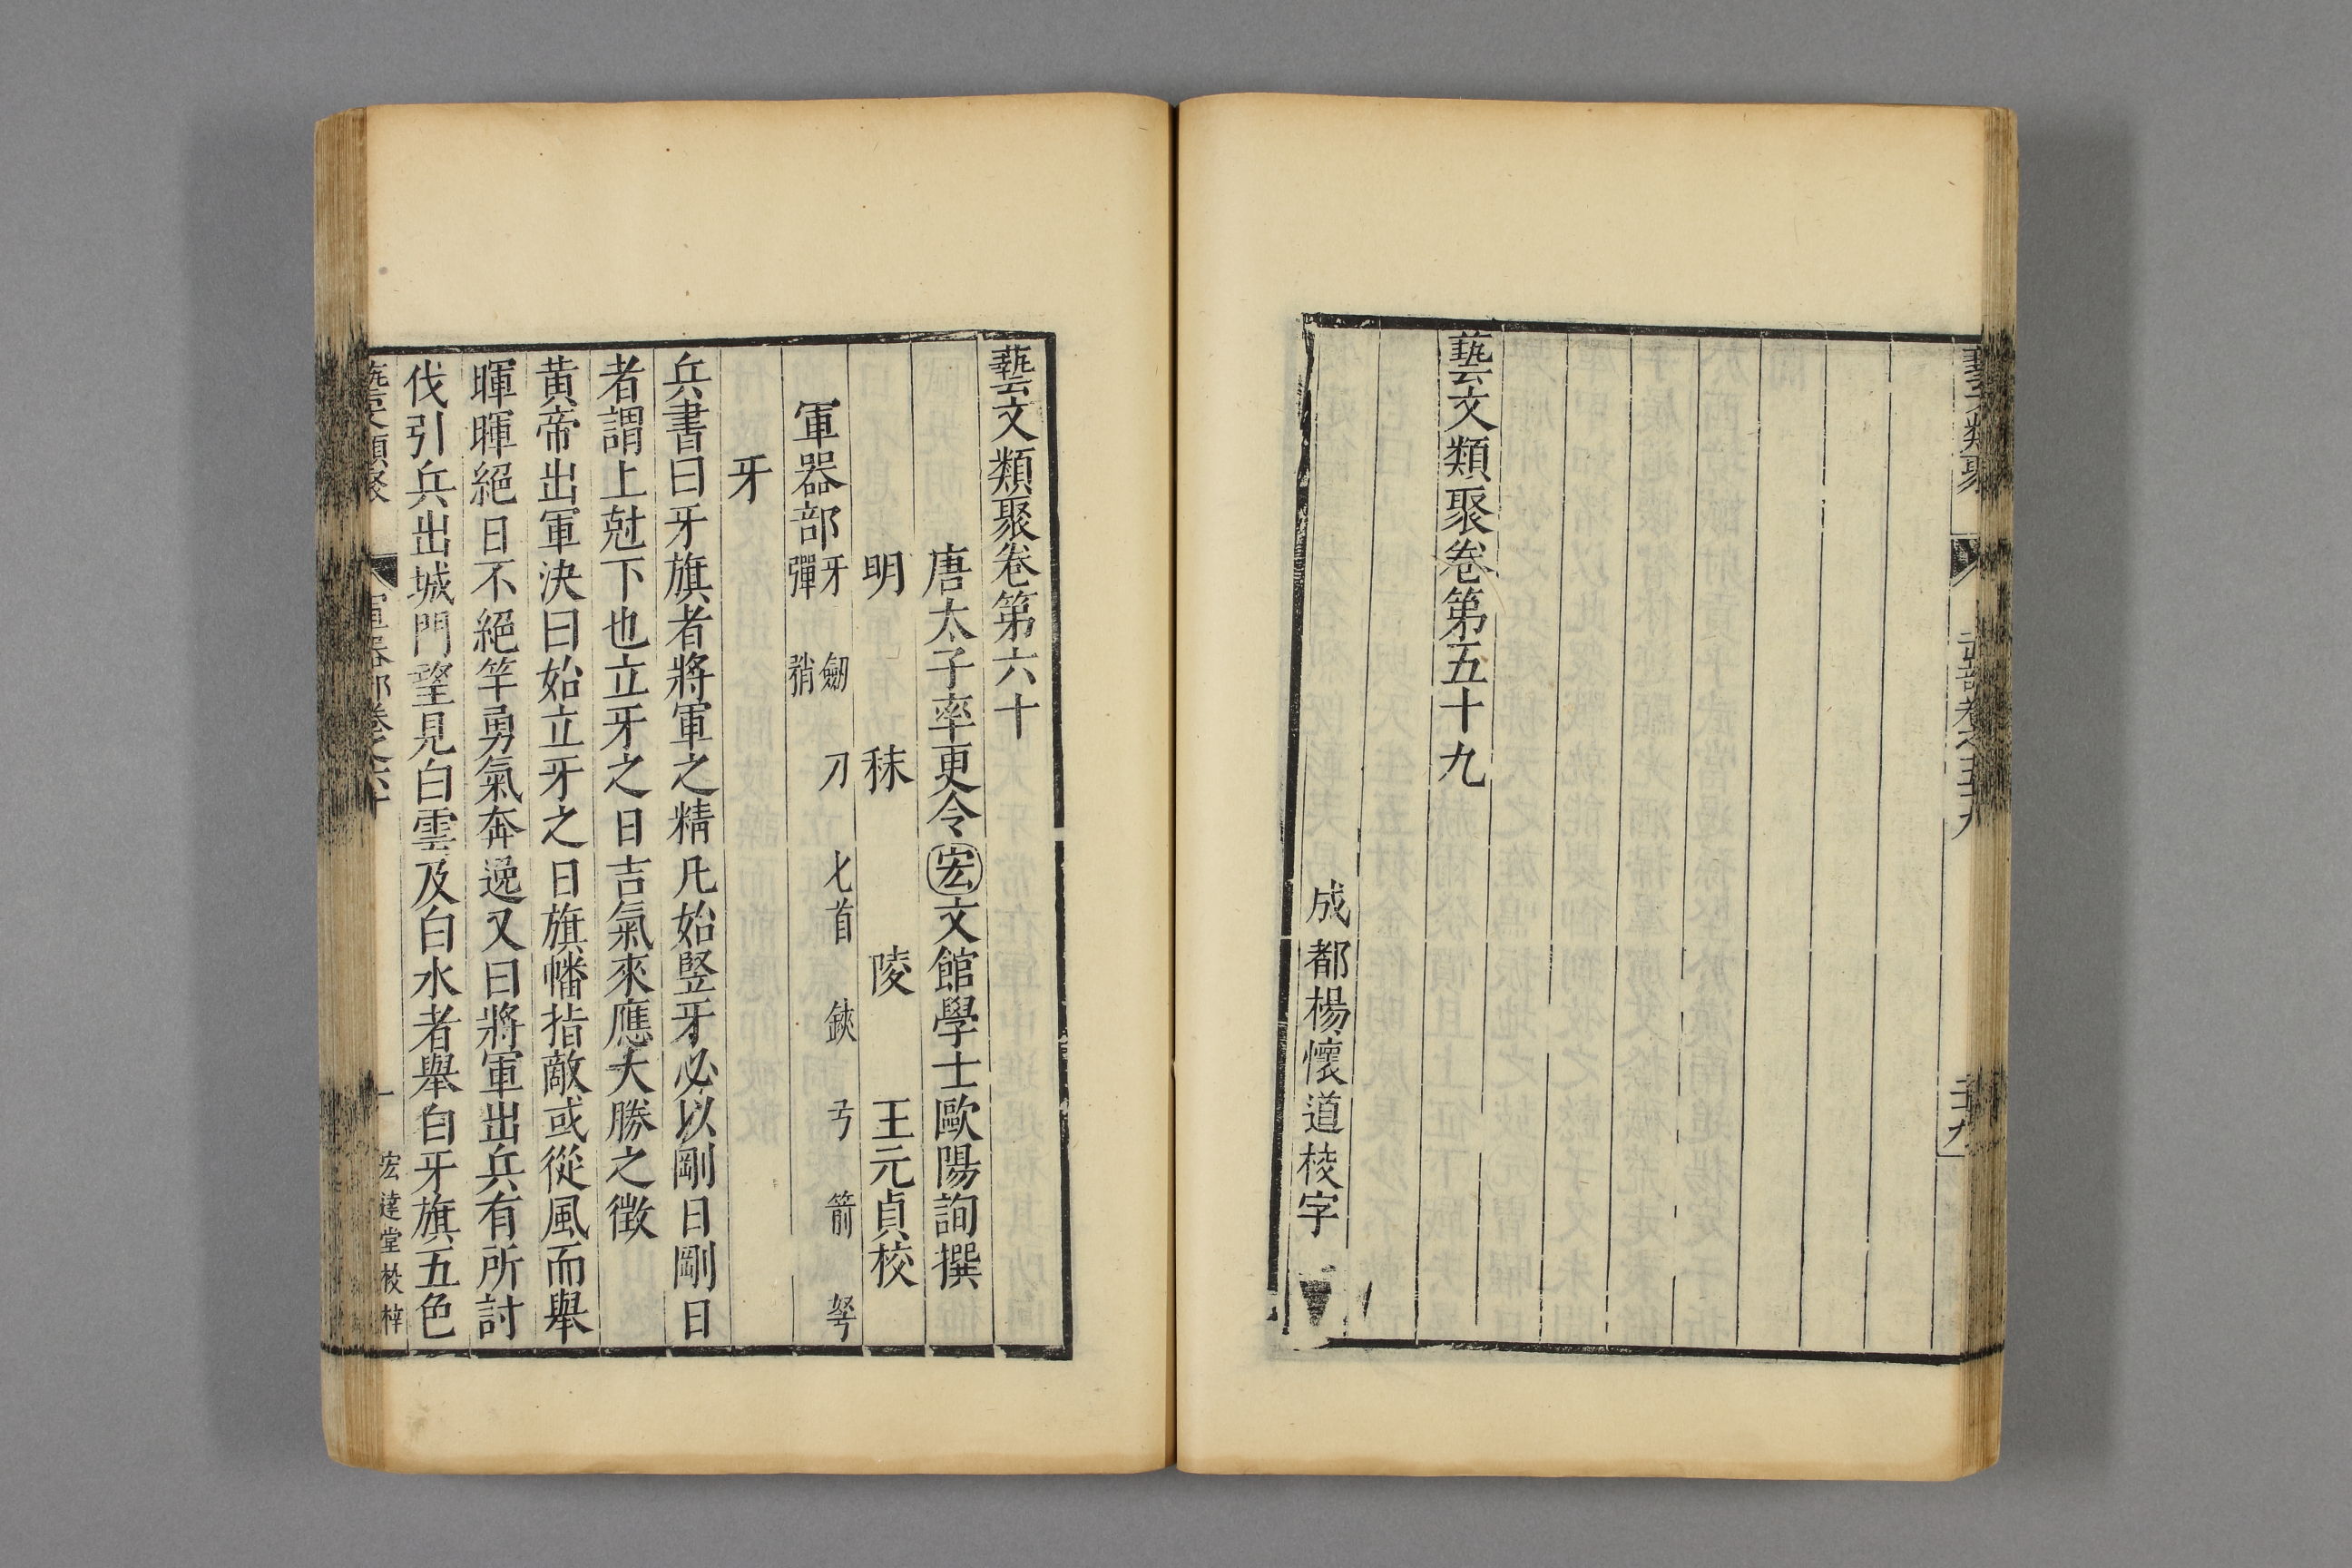 藝文類聚
武部卷之五十九
二十九
藝文類聚卷第五十九
成都楊懷道校字
藝文類聚卷第六十
唐太子率更令宏文館學士歐陽詢撰
明 秣 陵 王元貞校
軍器部 牙 劒 刀 匕首 鋏 弓 箭 弩
彈 矟
牙
兵書曰牙旗者將軍之精凡始竪牙必以剛日剛日
者謂上尅下也立牙之日吉氣來應大勝之徴
黃帝出軍決曰始立牙之日旗幡指敵或從風而舉
暉暉絕日不絕竿勇氣奔逸又曰將軍出兵有所討
伐引兵出城門望見白雲及白水者舉白牙旗五色
藝文類聚
軍器部卷之六十
一
宏達堂校梓